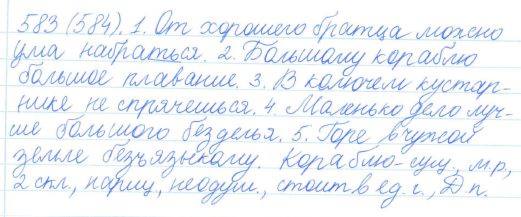 583 (584). 1. От хорошего братца можно
ума набраться. 2. Большому кораблю
большое плавание. 3. В колючем кустар-
нике не спрячешься. 4. Маленько дело луч-
ше большого безделья. 5. Горе в чужой
земле безъязыкому. Кораблю - сущ., м.р.,
2 скл., нариц., неодуш., стоит в ед. ч., Д п.